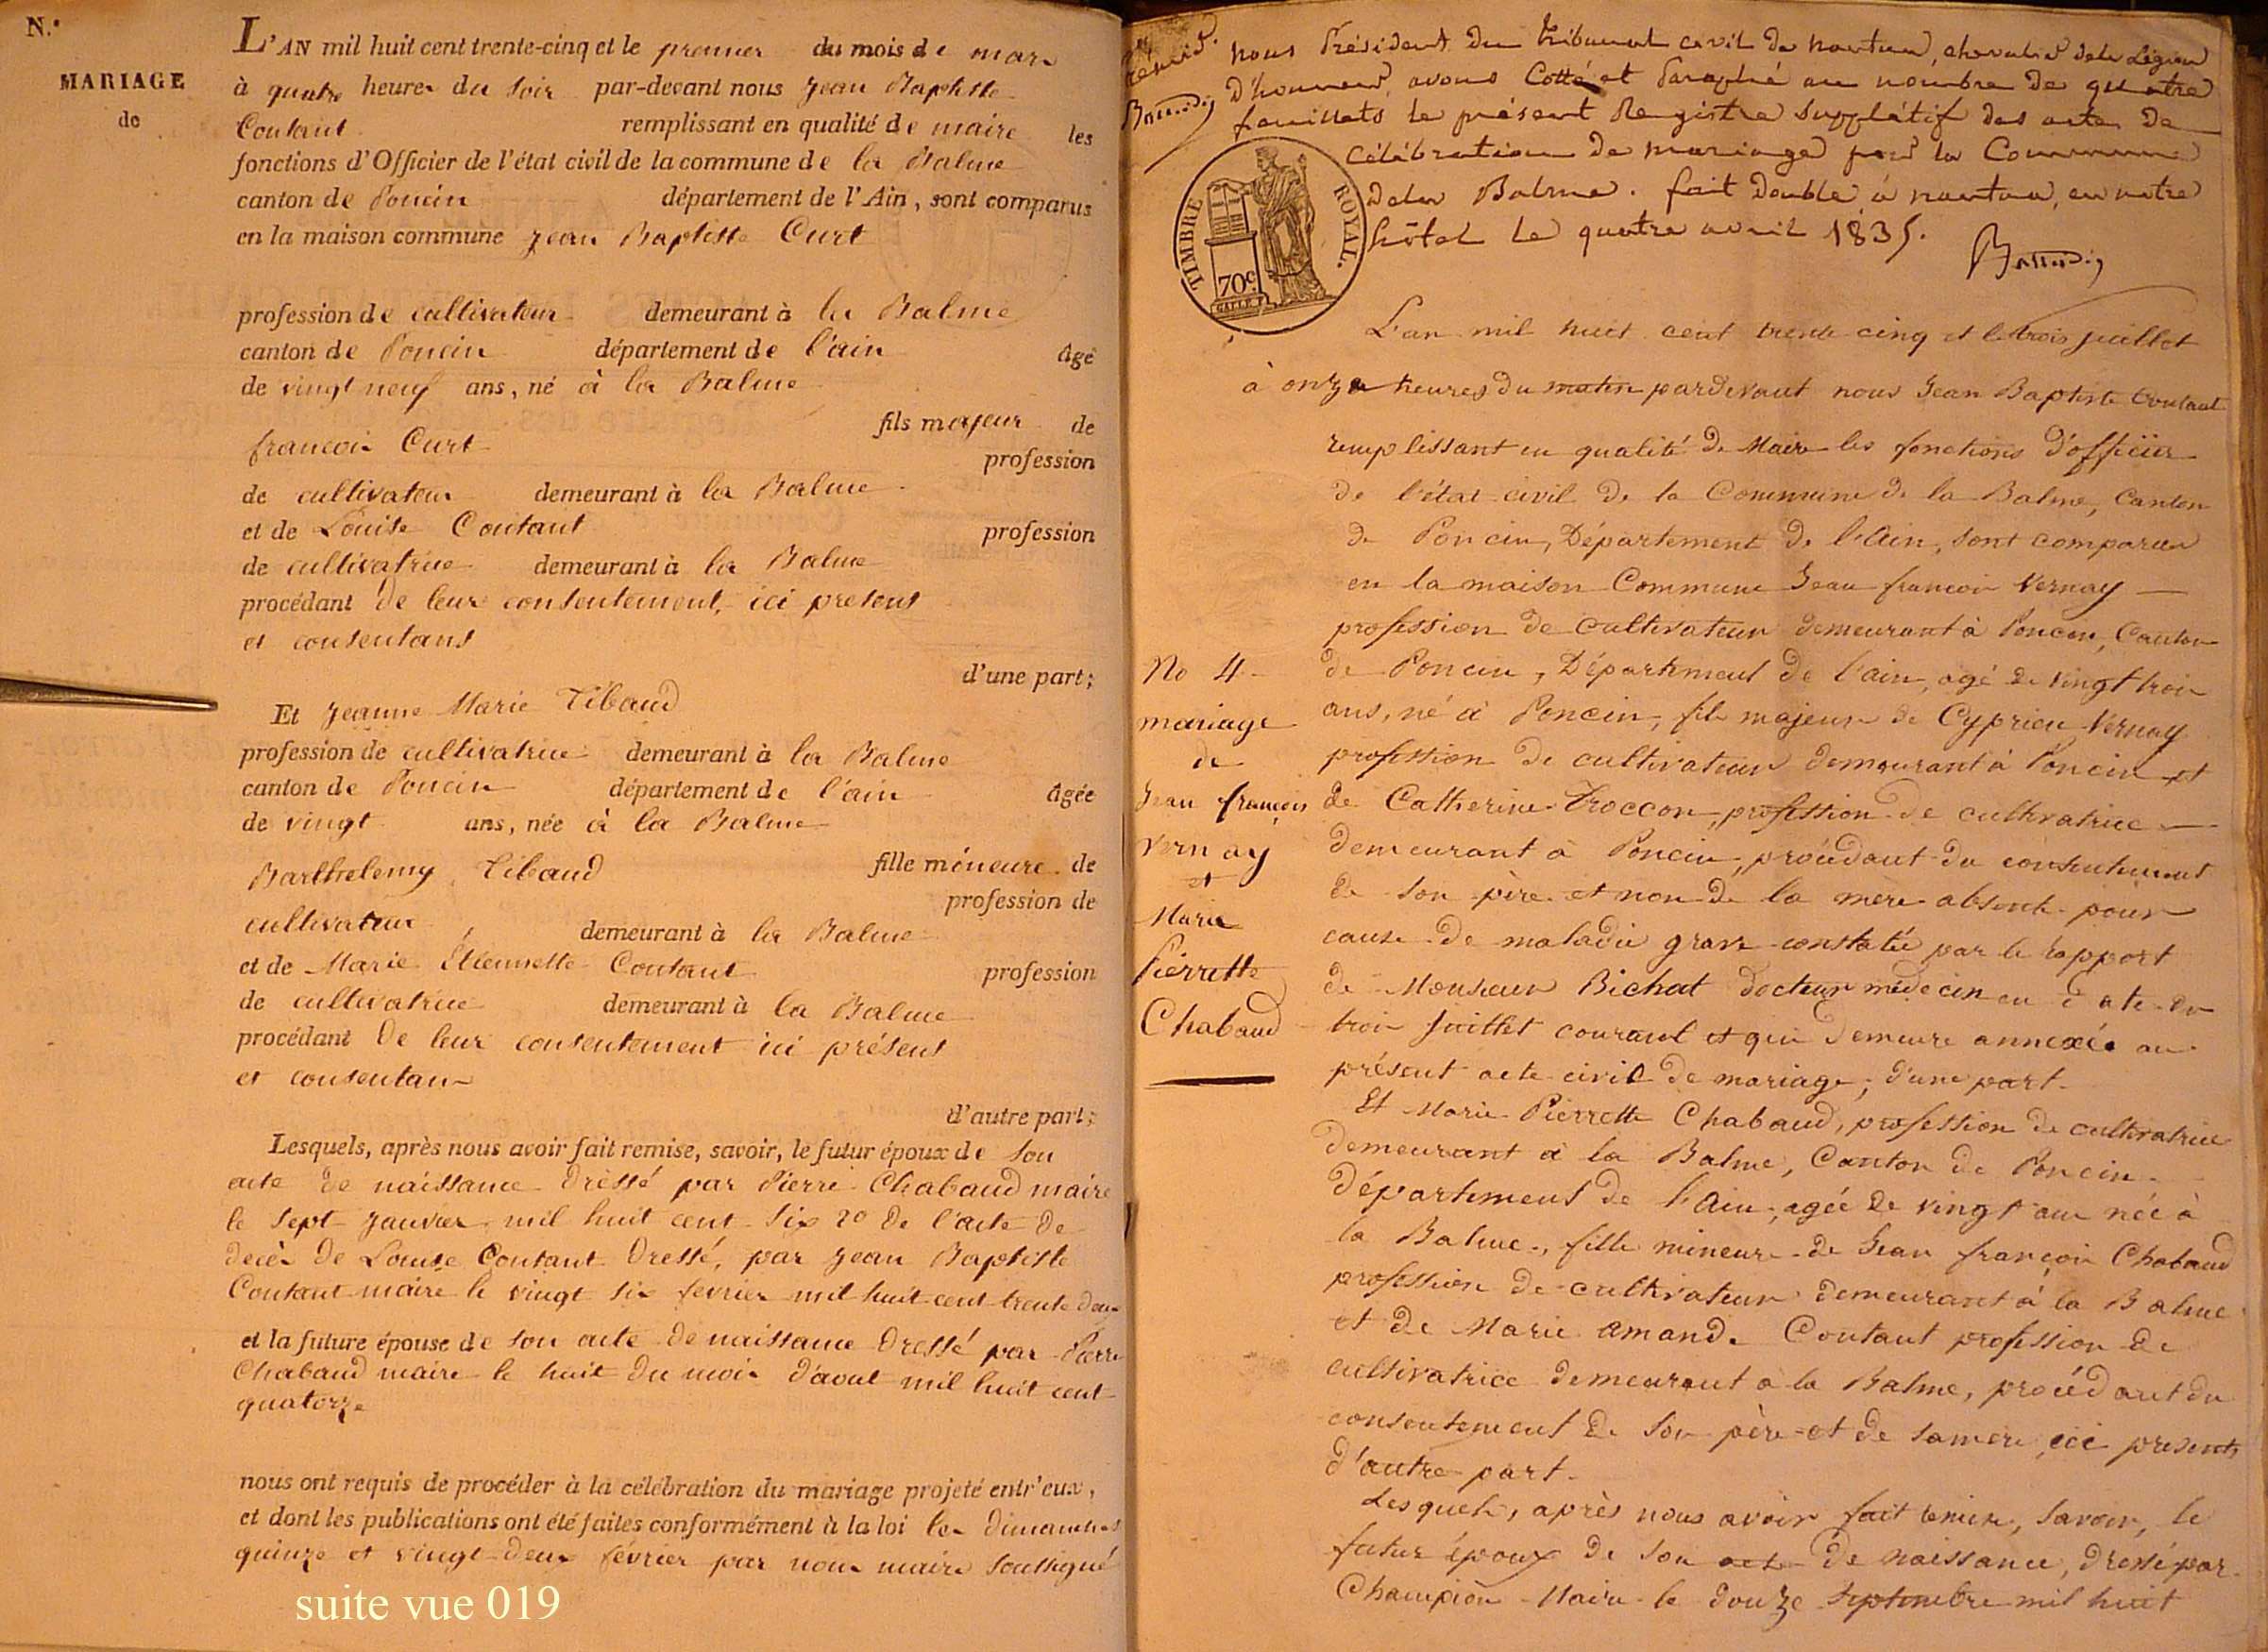 N.°
MARIAGE
de
L'AN mil huit cent trente-cinq et le premier du mois de mars
à quatre heures du soir par-devant nous Jean Baptiste
Coutant remplissant en qualité de maire les
fonctions d'Officier de l'état civil de la commune de la Balme
canton de Poncin département de l'Ain, sont comparus
en la maison commune Jean Baptiste Curt
profession de cultivateur demeurant à la Balme
canton de Poncin département de l'ain âgé
de vingt neuf ans, né à la Balme
fils majeur de
françois Curt profession
de cultivateur demeurant à la Balme
et de Louise Coutant profession
de cultivatrice demeurant à la Balme
procédant de leur consentement, ici présens
et consentans
d'une part;
Et Jeanne Marie Tibaud
profession de cultivatrice demeurant à la Balme
canton de Poncin département de l'ain âgée
de vingt ans, née à la Balme
fille mineure de
Barthelemy Tibaud profession de
cultivateur demeurant à la Balme
et de Marie Étiennette Coutant profession
de cultivatrice demeurant à la Balme
procédant de leur consentement ici présens
et consentans
d'autre part;
Lesquels, après nous avoir fait remise, savoir, le futur époux de son
acte de naissance dressé par Pierre Chabaud maire
le sept janvier mil huit cent six 2° de l'acte de
decès de Louise Coutant dressé, par Jean Baptiste
Coutant maire le vingt six fevrier mil huit cent trente deux
et la future épouse de son acte de naissance dressé par Pierre
Chabaud maire le huit du mois d'aout mil huit cent
quatorze
nous ont requis de procéder à la célébration du mariage projeté entr'eux,
et dont les publications ont été faites conformément à la loi les dimanches
quinze et vingt-deux février par nous maire soussigné
suite vue 019
nous Président du tribunal civil de nantua, chevalier de la Légion
d'honneur, avons Cotté et Paraphé au nombre de quatre
feuillets le présent Registre Supplétif des actes de
célébration de mariage pour la Commune
de la Balme. fait double à nantua, en notre
hôtel le quatre avril 1835.
TIMBRE ROYAL.
70c.
L'an mil huit cent trente cinq et le trois juillet
à onze heures du matin pardevant nous Jean Baptiste Coutant
remplissant en qualité de Maire les fonctions d'officier
de l'état civil de la Commune de la Balme, Canton
de Poncin, Département de l'Ain, sont comparus
en la maison Commune Jean françois Vernay
profession de cultivateur demeurant à Poncin, Canton
de Poncin, Département de l'ain, agé de vingt trois
ans, né à Poncin, fils majeur de Cyprien Vernay
profession de cultivateur demeurant à Poncin et
de Catherine Troccon, profession de cultivatrice
demeurant à Poncin, procédant du consentement
de son père et non de la mère absente pour
cause de maladie grave constatée par le rapport
de Monsieur Bichat docteur médecin en date du
trois Juillet courant et qui demeure annexée au
présent acte civil de mariage; d'une part.
No 4
mariage
de
Jean françois
Vernay
et
Marie
Pierrette
Chabaud
Et Marie Pierrette Chabaud, profession de cultivatrice
demeurant à la Balme, Canton de Poncin
département de l'Ain, agée de vingt ans née à
la Balme, fille mineure de Jean françois Chabaud
profession de cultivateur demeurant à la Balme
et de Marie Amande Coutant profession de
cultivatrice demeurant à la Balme, procédant du
consentement de son père et de sa mère ici presents
d'autre part.
Lesquels, après nous avoir fait remise, savoir, le
futur époux de son acte de naissance, dressé par
Champion Maire le douze septembre mil huit